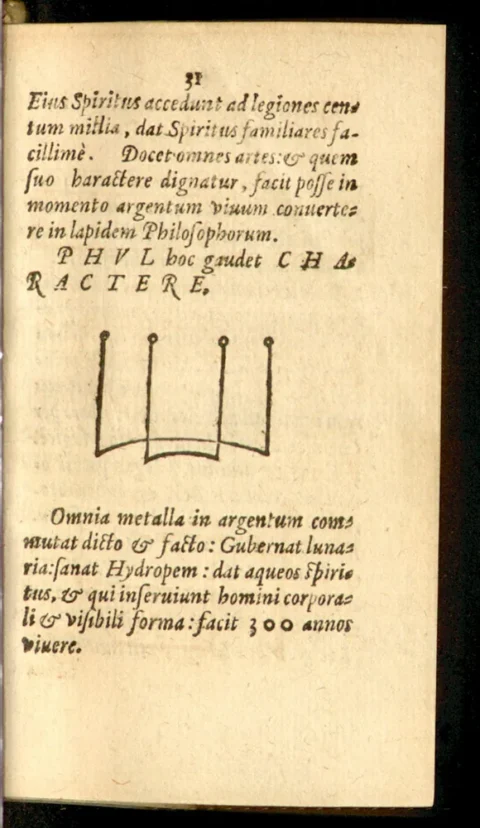 31
Eius Spiritus accedunt ad legiones cen⸗
tum millia, dat Spiritus familiares fa-
cillimè. Docet omnes artes: & quem
ſuo haractere dignatur, facit poſſe in
momento argentum viuum conuerte⸗
re in lapidem Philoſophorum.
P H V L hoc gaudet C H A⸗
R A C T E R E.
Omnia metalla in argentum com⸗
mutat dicto & facto: Gubernat luna⸗
ria: ſanat Hydropem: dat aqueos ſpiri⸗
tus, & qui inſeruiunt homini corpora⸗
li & viſibili forma: facit 300 annos
viuere.